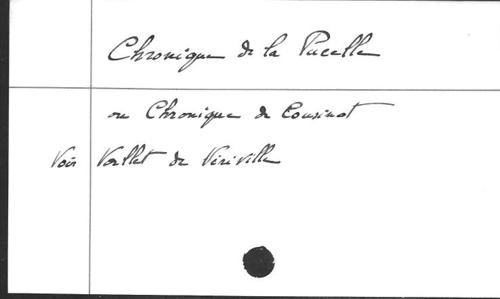 Chronique de la Pucelle
ou Chronique de Cousinot
Voir Vallet de Viriville